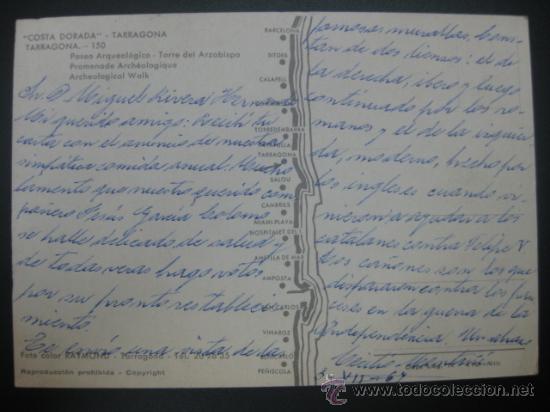 "COSTA DORADA" - TARRAGONA
TARRAGONA. - 150
Paseo Arqueológico - Torre del Arzobispo
Promenade Archéologique
Archeological Walk
Sr. D. Miguel Rivera
Mi querido amigo: Recibí tu
carta con el anuncio de nuestra
simpática comida anual. Mucho
lamento que nuestro querido com-
pañero Jesús García Colomo
se halle delicado de salud y
de todas veras hago votos
por su pronto restableci-
miento.
Te envío una vista de las
famosas murallas. Cons-
tan de dos lienzos: el de
la derecha, ibero y luego
continuado por los ro-
manos y el de la izquier-
da, moderno, hecho por
los ingleses cuando vi-
nieron a ayudar a los
catalanes contra Felipe V.
Los cañones son los que
dispararon contra los fran-
ceses en la guerra de la
independencia. Un abrazo
VII - 64
BARCELONA
SITGES
CALAFELL
TORREDEMBARRA
TARRAGONA
SALOU
CAMBRILS
MIAMI-PLAYA
HOSPITALET DEL I.
AMETLLA DE MAR
AMPOSTA
VINAROZ
BENICARLÓ
PEÑISCOLA
Foto color RAYMOND - Tarragona - Tel.
Reproducción prohibida - Copyright
todocoleccion